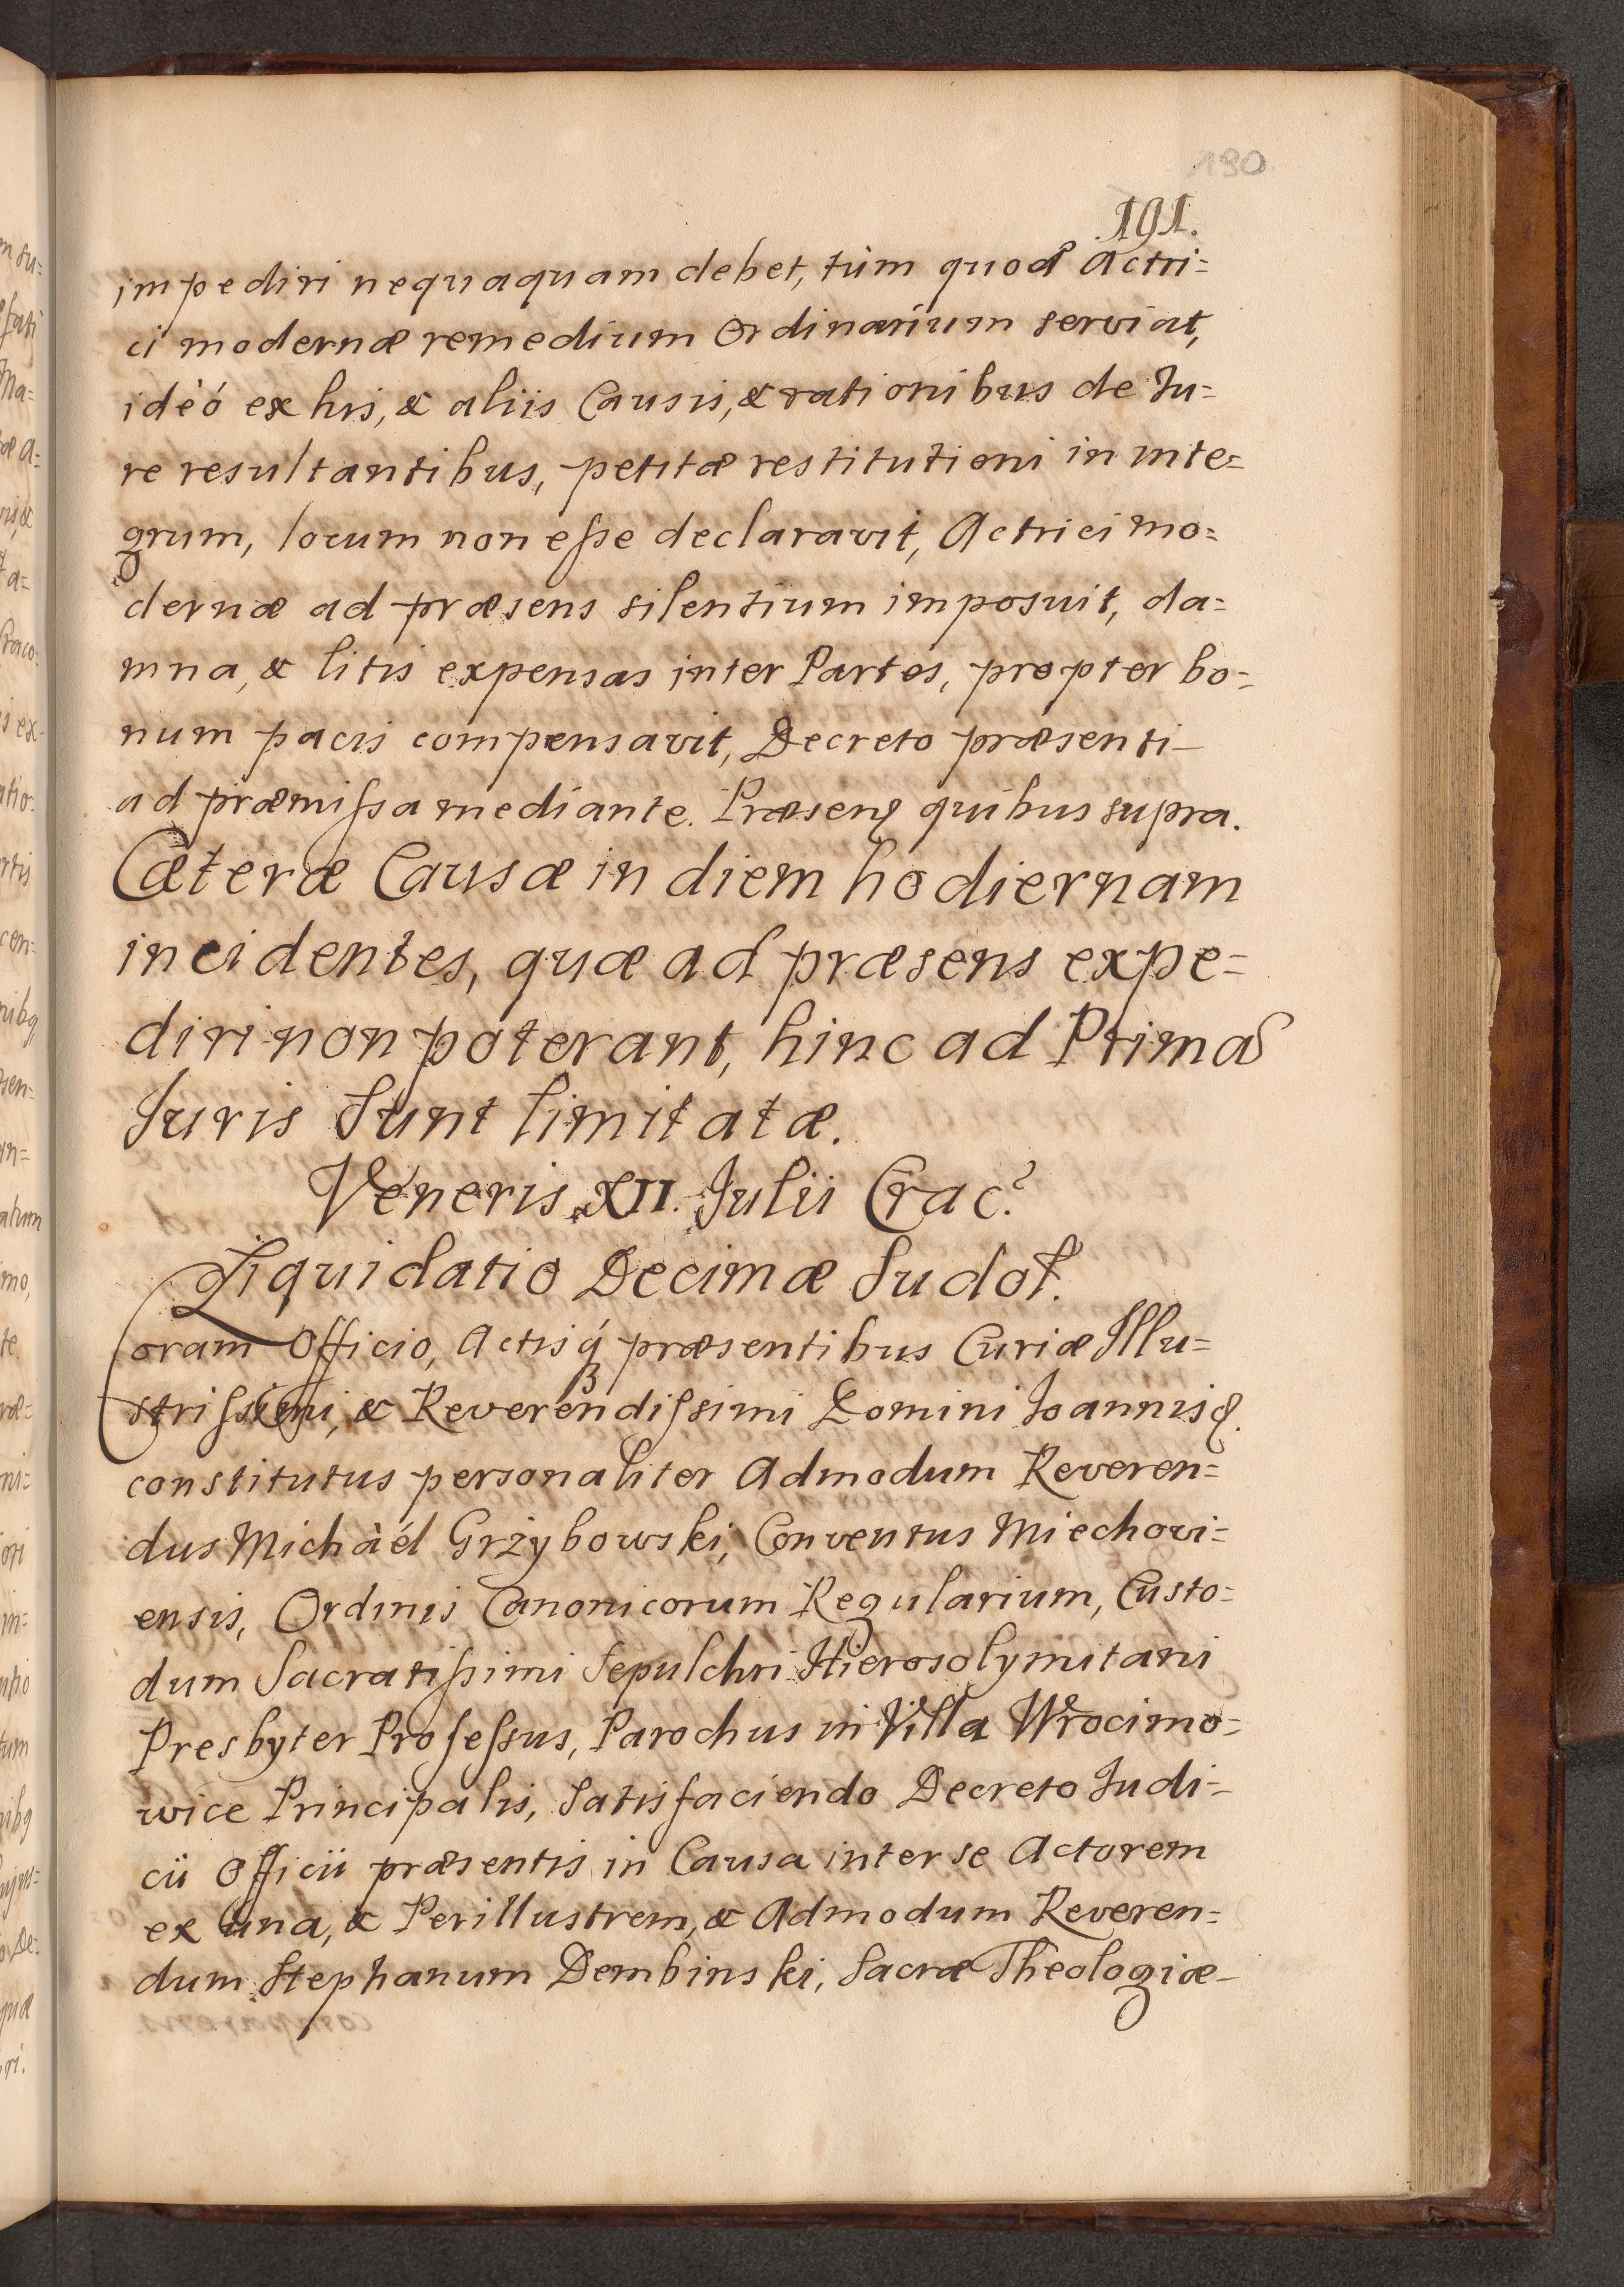 190
191.
impediri nequaquam debet, tùm quod Actri=
ci modernæ remedium Ordinarium serviat,
idèó ex his, & aliis Causis, & rationibus de Ju=
re resultantibus, petitæ restitutioni in inte=
grum, locum non eſse declaravit, Actrici mo=
dernæ ad præsens silentium imposuit, da=
mna, & litis expensas inter Partes, propter bo=
num pacis compensavit, Decreto præsenti
ad præmiſsa mediante. Præsen quibus supra.
Cæteræ Causæ in diem hodiernam
incidentes, quæ ad præsens expe=
diri non poterant, hinc ad Prima
Juris Sunt limitatæ.
Veneris XII. Julii Crac.
Liquidatio Decimæ Sudoł.
Coram Officio, Actisq́ȝ præsentibus Curiæ Illu=
striſsimi, & Reverendiſsimi Domini Joannis
constitutus personaliter Admodum Reveren=
dus Michàél Grżybowski, Conventus Miechovi=
ensis, Ordinis Canonicorum Regularium, Custo=
dum Sacratiſsimi Sepulchri Hierosolymitani
Presbyter Profeſsus, Parochus in Villa Wrocimo=
wice Principalis, Satisfaciendo Decreto Judi=
cii Officii præsentis in Causa inter se Actorem
ex una, & Perillustrem, & Admodum Reveren=
dum Stephanum Dembinski, Sacræ Theologiæ